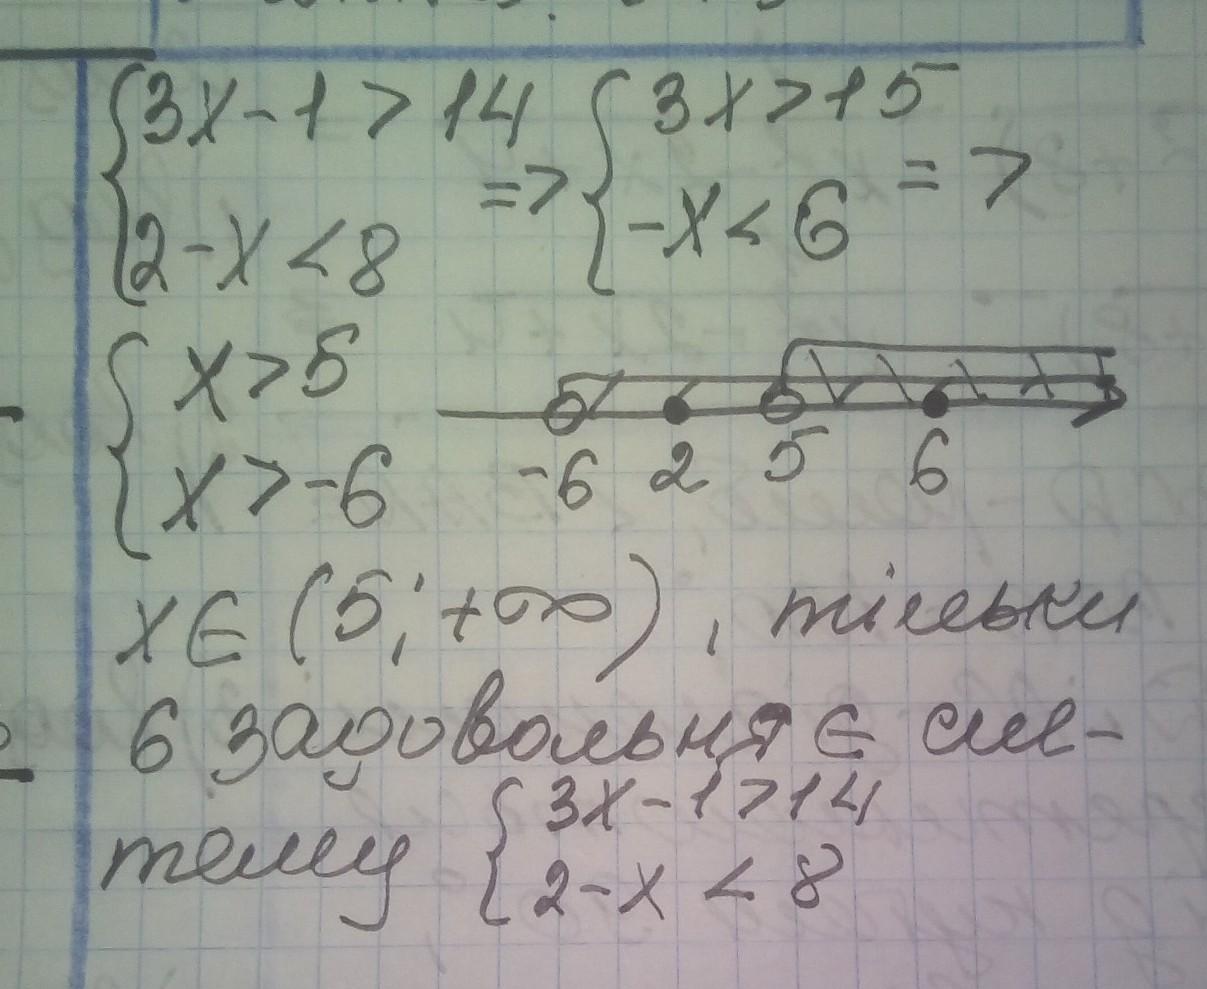 {3x-1>14 => {3x>15 =>
2-x<8 -x<6
{x>5
x>-6
-6 2 5 6
x∈(5;+∞), тільки
6 задовольняє сис-
тему {3x-1>14
2-x<8